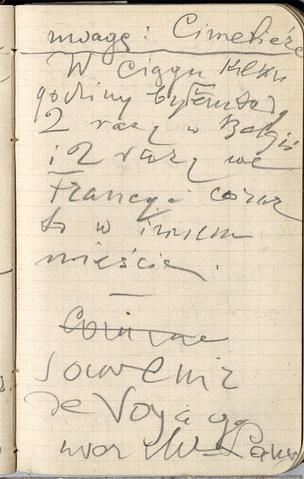 uwagę: Cimetière
W ciągu kilku
godziny byłem tu
2 razy w Belgii
i 2 razy we
Francyi coraz
to w innem
mieście.
—
Souvenir
de Voyage